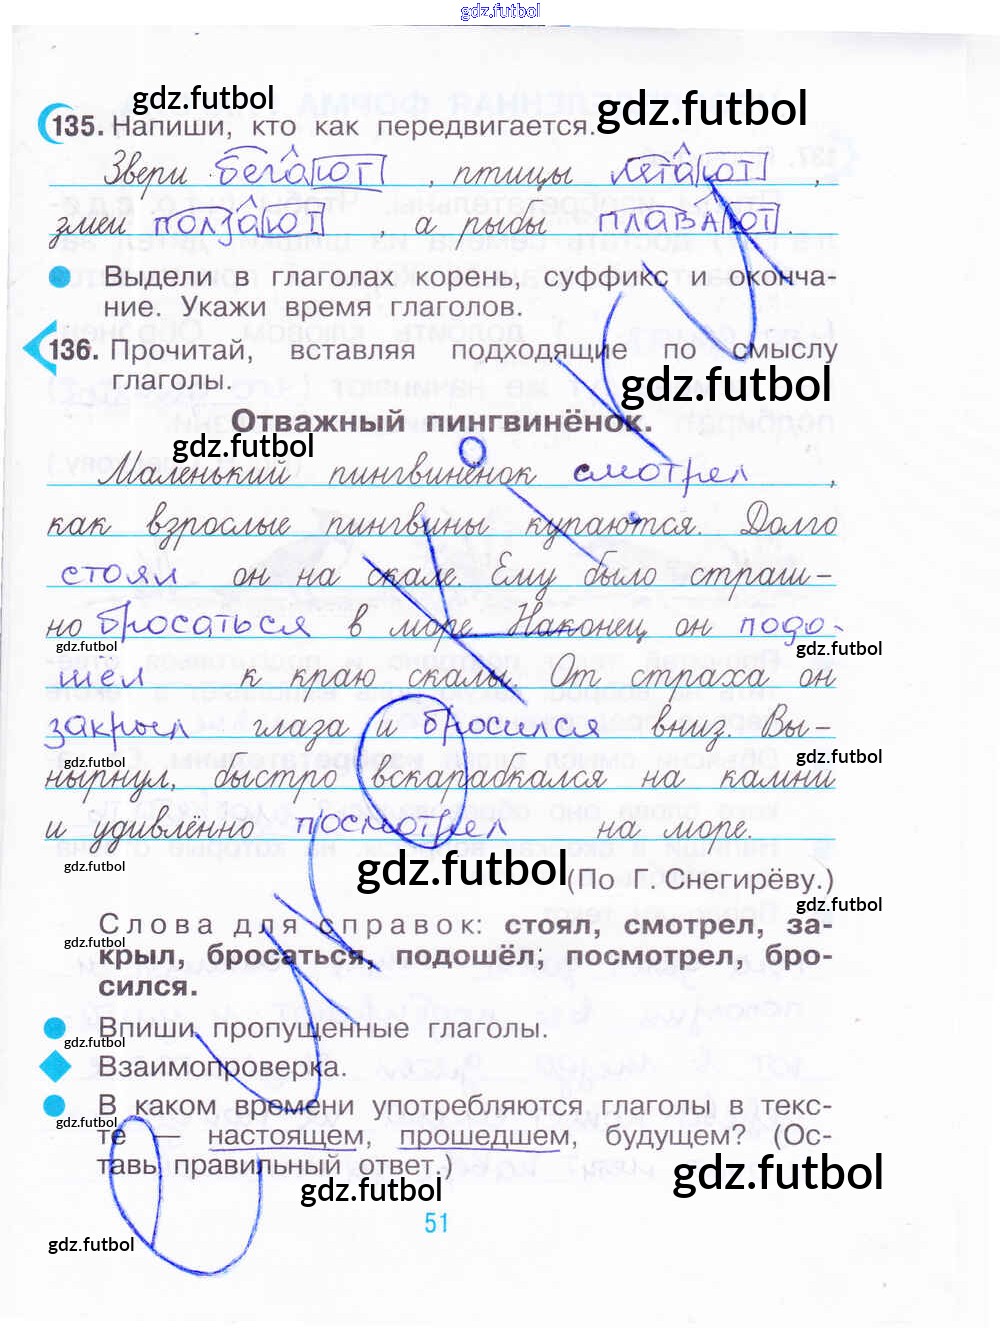 gdz.futbol
gdz.futbol
gdz.futbol
135. Напиши, кто как передвигается.
Звери бегают, птицы летают,
змеи ползают, а рыбы плавают.
Выдели в глаголах корень, суффикс и оконча-
ние. Укажи время глаголов.
136. Прочитай, вставляя подходящие по смыслу
глаголы.
gdz.futbol
Отважный пингвинёнок.
gdz.futbol
Маленький пингвинёнок смотрел,
как взрослые пингвины купаются. Долго
стоял он на скале. Ему было страш-
но бросаться в море. Наконец он подо-
gdz.futbol
gdz.futbol
шёл к краю скалы. От страха он
закрыл глаза и бросился вниз. Вы-
gdz.futbol
gdz.futbol
нырнул, быстро вскарабкался на камни
и удивлённо посмотрел на море.
gdz.futbol
gdz.futbol
(По Г. Снегирёву.)
gdz.futbol
Слова для справок: стоял, смотрел, за-
gdz.futbol
крыл, бросаться, подошёл, посмотрел, бро-
сился.
Впиши пропущенные глаголы.
gdz.futbol
Взаимопроверка.
В каком времени употребляются глаголы в текс-
gdz.futbol
те — настоящем, прошедшем, будущем? (Ос-
тавь правильный ответ.)
gdz.futbol
gdz.futbol
51
gdz.futbol